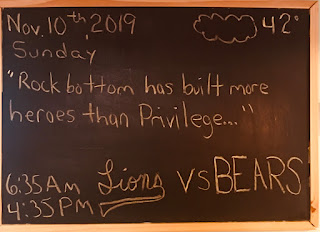 Nov. 10th, 2019 42°
Sunday
"Rock bottom has built more
heroes than Privilege..."
6:35AM Lions vs BEARS
4:35PM